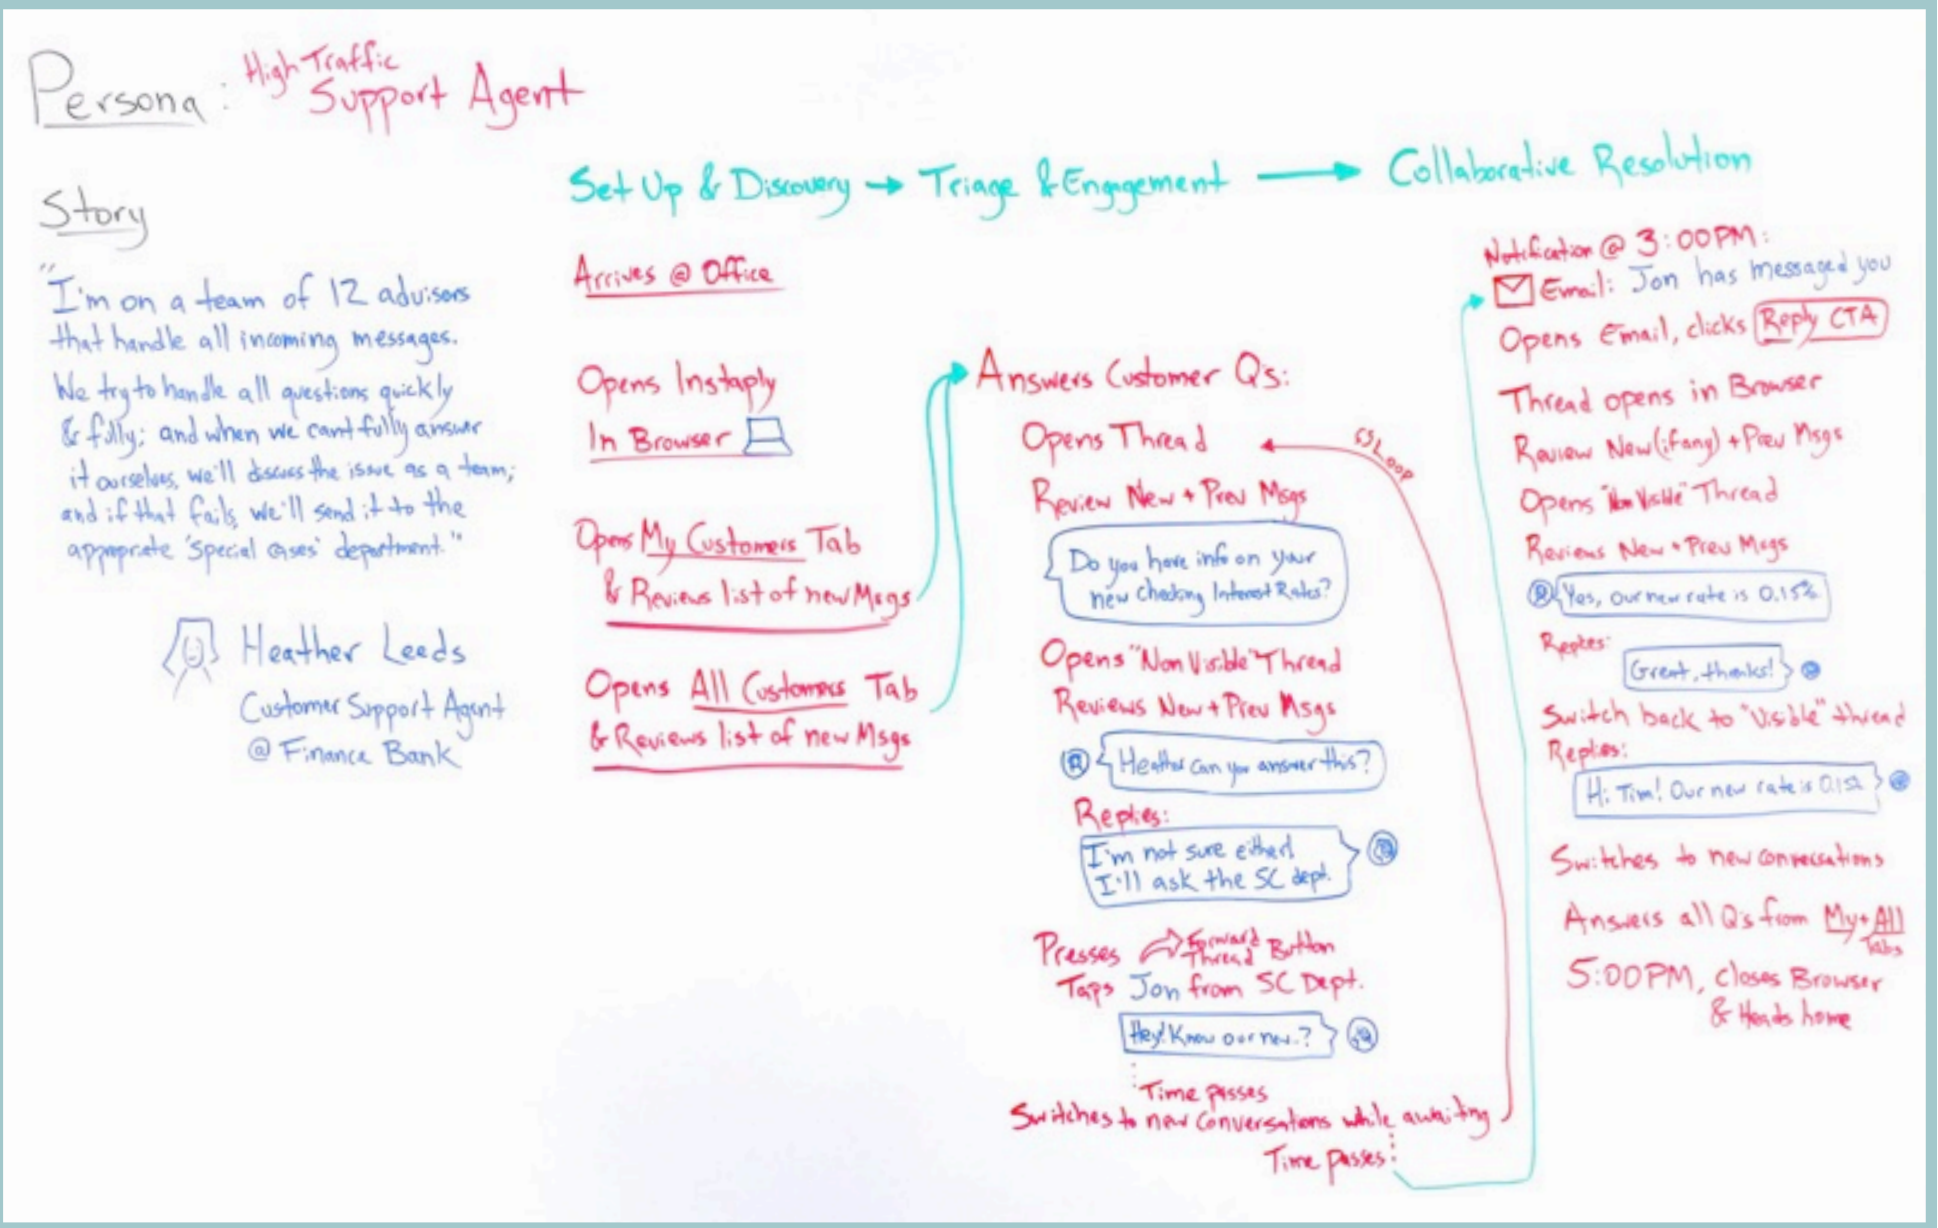 Persona: High Traffic
Support Agent
Story
"I'm on a team of 12 advisors
that handle all incoming messages.
We try to handle all questions quickly
& fully; and when we cant fully answer
it ourselves, we'll discuss the issue as a team;
and if that fails, we'll send it to the
appropriate 'special cases' department."
Heather Leeds
Customer Support Agent
@ Finance Bank
Set Up & Discovery → Triage & Engagement → Collaborative Resolution
Arrives @ Office
Opens Instaply
In Browser
Opens My Customers Tab
& Reviews list of new Msgs
Opens All Customers Tab
& Reviews list of new Msgs
Answers Customer Qs:
Opens Thread
CS Loop
Review New + Prev Msgs
Do you have info on your
new checking Interest Rates?
Opens "Non Visible" Thread
Reviews New + Prev Msgs
Heather can you answer this?
Replies:
I'm not sure either!
I'll ask the SC dept.
Presses Forward Thread Button
Taps Jon from SC Dept.
Hey! Know our new..?
Time passes
Switches to new conversations while awaiting
Time passes
Notification @ 3:00PM:
Email: Jon has messaged you
Opens Email, clicks Reply CTA
Thread opens in Browser
Review New (if any) + Prev Msgs
Opens "Non Visible" Thread
Reviews New + Prev Msgs
Yes, our new rate is 0.15%
Replies:
Great, thanks!
Switch back to "Visible" thread
Replies:
Hi Tim! Our new rate is 0.15%
Switches to new conversations
Answers all Q's from My + All
Tabs
5:00PM, closes Browser
& Heads home